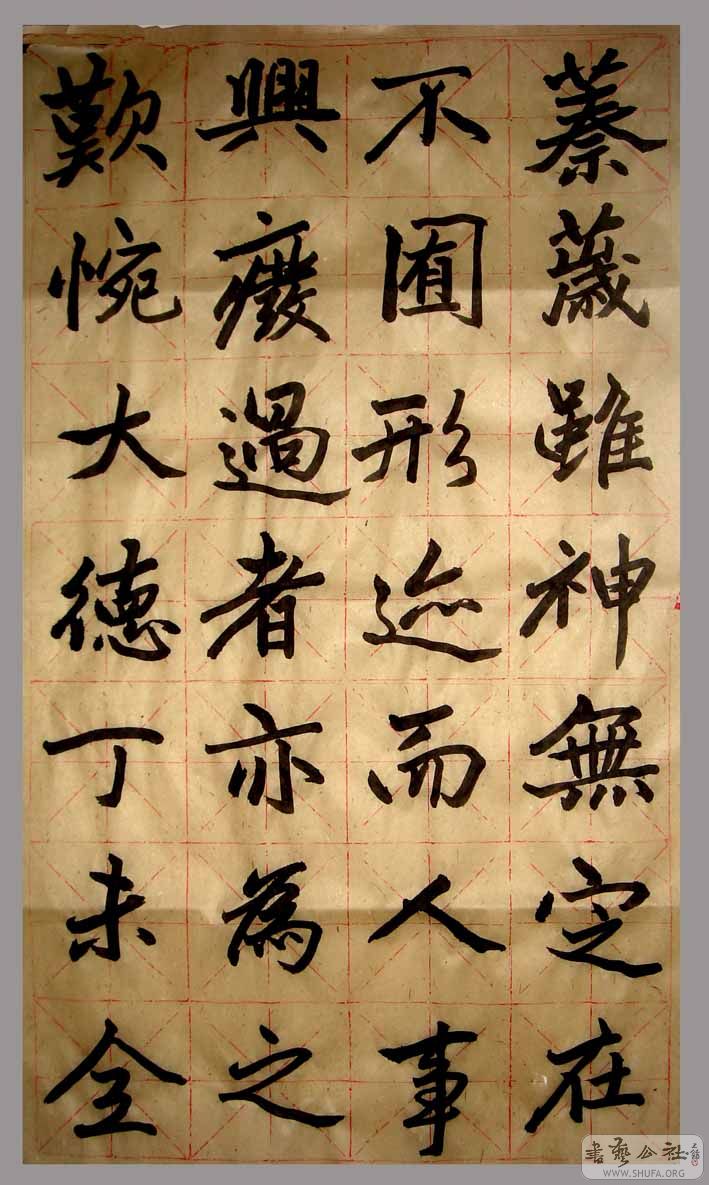 蓁薉雖神無定在
不囿形迹而人事
興癈過者亦為之
歎惋大德丁未全
書藝公社
WWW.SHUFA.ORG